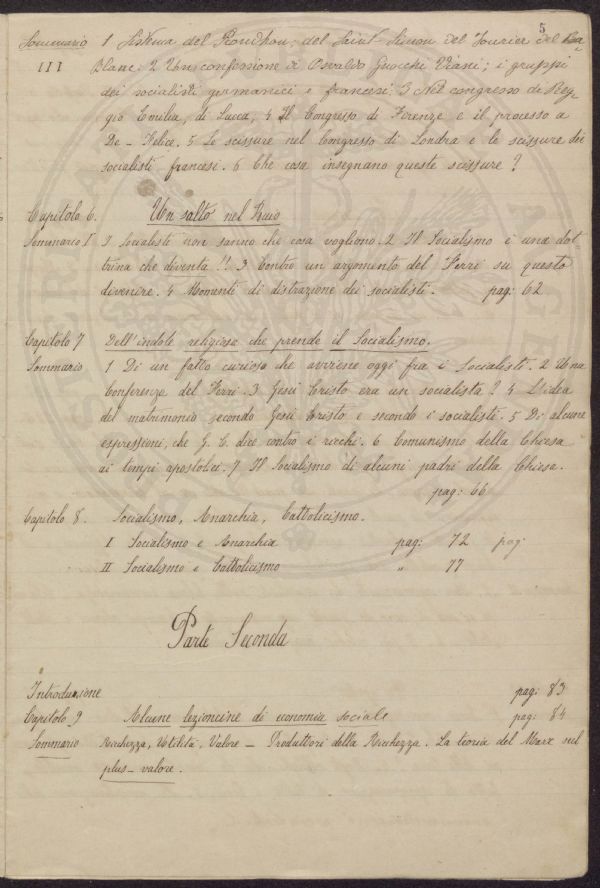 5
Sommario 1 Sistema del Proudhon, del Saint-Simon del Fourier del
III Blanc. 2 Una confessione di Osvaldo Gnocchi Viani; i gruppi
dei socialisti germanici e francesi. 3 Nel congresso di Reg-
gio Emilia, di Lucca, 4 Il Congresso di Firenze e il processo a
De-Felice. 5 Le scissure nel Congresso di Londra e le scissure dei
socialisti francesi. 6 Che cosa insegnano queste scissure?
Capitolo 6. Un salto nel Buio
Sommario I I Socialisti non sanno che cosa vogliono. 2 Il Socialismo è una dot-
trina che diventa!!. 3 Contro un argomento del Ferri su questo
divenire. 4 Momenti di distrazione dei socialisti. pag: 62
Capitolo 7 Dell'indole religiosa che prende il Socialismo.
Sommario 1 Di un fatto curioso che avviene oggi fra i Socialisti. 2 Una
Conferenza del Ferri. 3 Gesù Cristo era un socialista? 4 L'idea
del matrimonio secondo Gesù Cristo e secondo i socialisti. 5 Di alcune
espressioni, che G. C. dice contro i ricchi. 6 Comunismo della Chiesa
ai tempi apostolici. 7 Il Socialismo di alcuni padri della Chiesa.
pag: 66
Capitolo 8. Socialismo, Anarchia, Cattolicismo.
I Socialismo e Anarchia pag: 72 pag
II Socialismo e Cattolicismo " 77
Parte Seconda
Introduzione pag: 83
Capitolo 9 Alcune lezioncine di economia sociale pag: 84
Sommario Ricchezza, Utilità, Valore - Produttori della Ricchezza. La teoria del Marx sul
plus-valore.